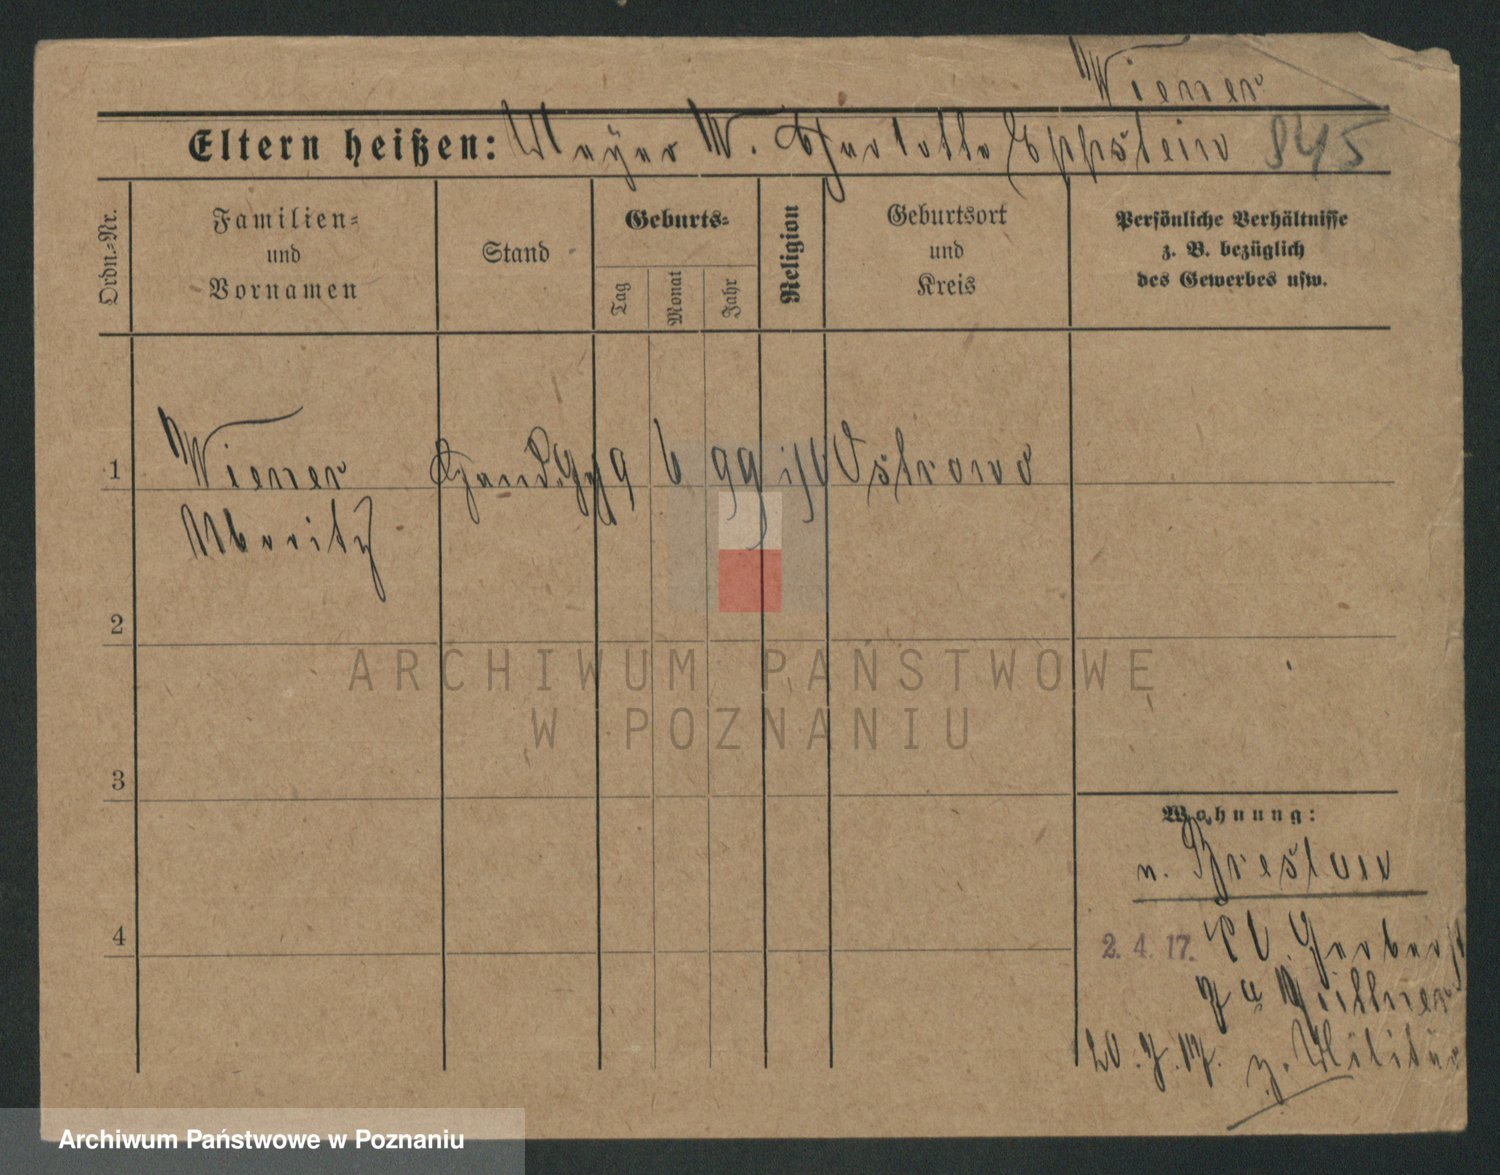 Wiener
Eltern heißen: Mayer W. Charlotte Eppstein 845
Ordn.-Nr.
Familien-
und
Vornamen
Stand
Geburts-
Tag
Monat
Jahr
Religion
Geburtsort
und
Kreis
Persönliche Verhältnisse
z. B. bezüglich
des Gewerbes usw.
1 Wiener Hand. Geh 9 6 99 isr Ostrowo
Moritz
2
3
4
Wohnung:
n. Breslau
2. 4. 17. Gerberst
7
20.7.17. z. Militär
ARCHIWUM PAŃSTWOWE
W POZNANIU
Archiwum Państwowe w Poznaniu